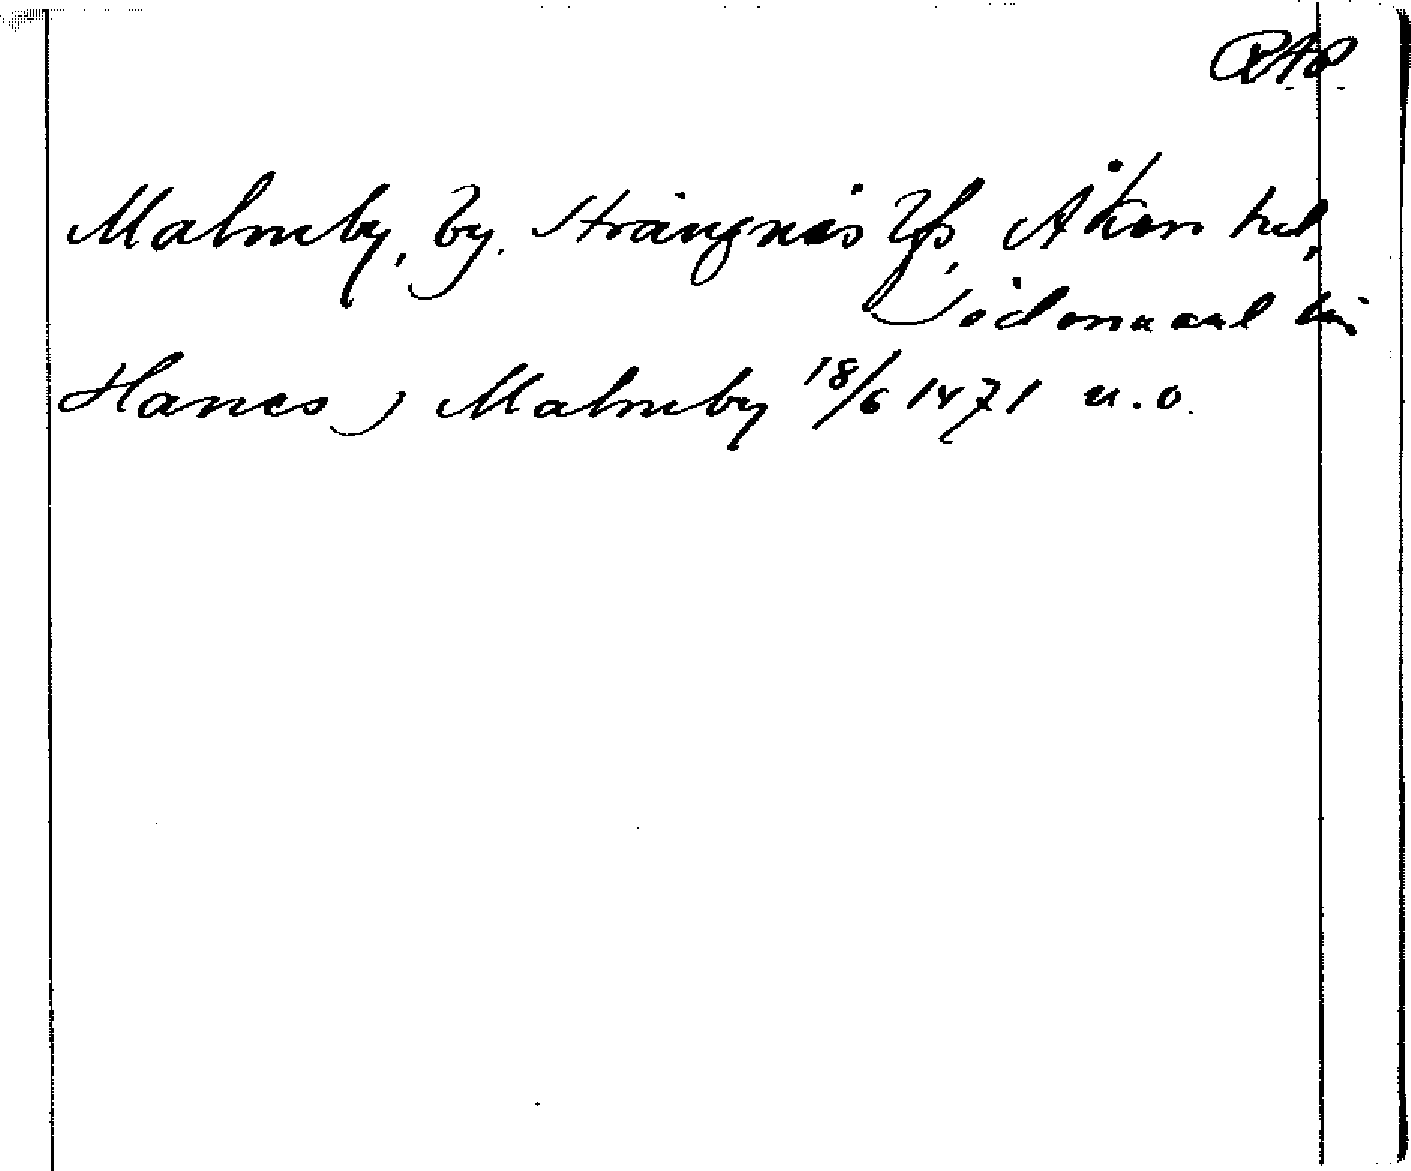 RAP
Malmby, by. Strängnäs lfs, Åkers hd,
Södermanl län
Hanes i Malmby 18/6 1471 u.o.